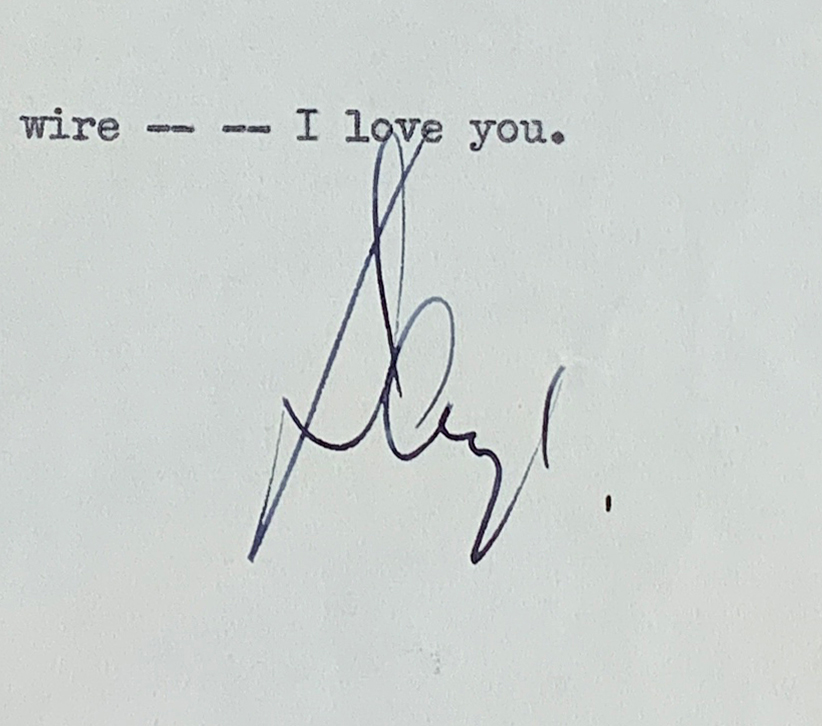 wire -- -- I love you.